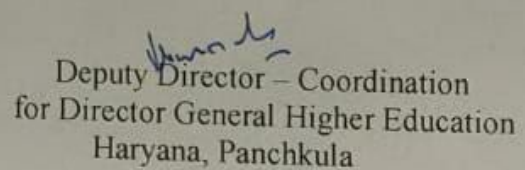 Deputy Director – Coordination
for Director General Higher Education
Haryana, Panchkula